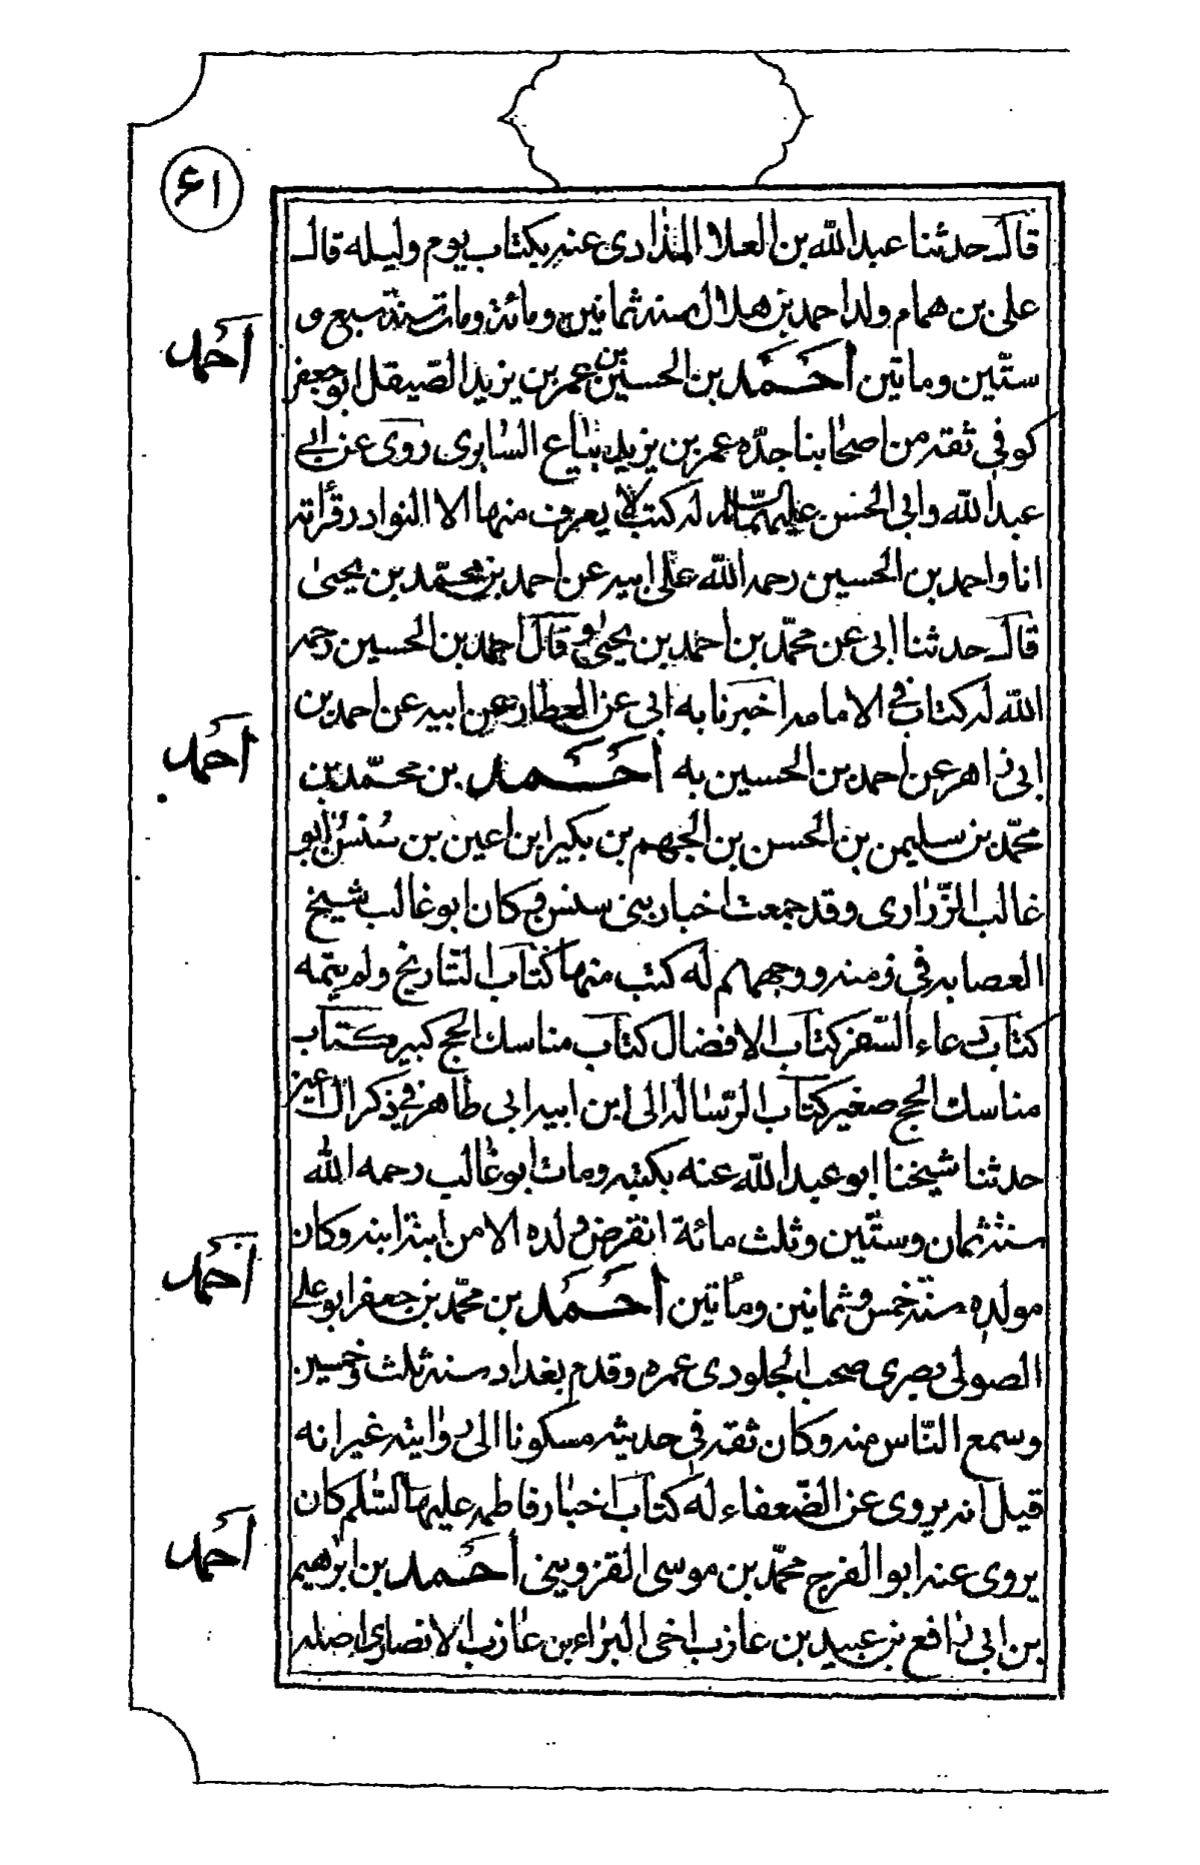 ۶۱
قال حدثنا عبدالله بن العلاء المذاری عنه بکتاب یوم ولیله قال
علی بن همام ولد احمد بن هلال سنه ثمانین ومائة ومات سنة سبع و
احمد
ستّین وماتین أحمد بن الحسین بن عمر بن یزید الصّیقل ابوجعفر
کوفی ثقه من اصحابنا جدّه عمر بن یزید بیّاع السّابری روی عن ابی
عبدالله وابی الحسن علیهما السّلام له کتب لا یعرف منها الا النوادر قرأته
انا واحمد بن الحسین رحمه الله علی ابیه عن احمد بن محمّد بن یحیی
قال حدثنا ابی عن محمّد بن احمد بن یحیی و قال احمد بن الحسین رحمه
الله له کتاب فی الامامه اخبرنا به ابی عن العطار عن ابیه عن احمد بن
احمد
ابی زاهر عن احمد بن الحسین به أحمد بن محمّد بن
محمّد بن سلیمن بن الحسن بن الجهم بن بکیر ابن اعین بن سنسن ابو
غالب الزّراری وقد جمعت اخبار بنی سنسن و کان ابو غالب شیخ
العصابه فی زمنه و وجههم له کتب منها کتاب التّاریخ ولم یتمه
کتاب دعاء السّفر کتاب الافضال کتاب مناسک الحج کبیر کتاب
مناسک الحج صغیر کتاب الرّساله الی ابن ابیه ابی طاهر فی ذکر ال اعین
حدثنا شیخنا ابو عبدالله عنه بکتبه ومات ابو غالب رحمه الله
سنة ثمان وستّین وثلث مائة انقرض ولده الا من ابنة ابنه وکان
احمد
مولده سنة خمس وثمانین ومأتین أحمد بن محمّد بن جعفر ابو علی
الصولی بصری صحب الجلودی عمره وقدم بغداد سنه ثلث وخمسین
وسمع النّاس منه وکان ثقه فی حدیثه مسکونا الی روایته غیر انه
قیل انه یروی عن الضّعفاء له کتاب اخبار فاطمه علیها السّلم کان
احمد
یروی عنه ابوالفرج محمّد بن موسی القزوینی أحمد بن ابرهیم
بن ابی رافع بن عبید بن عازب اخی البراء بن عازب الانصاری اصله